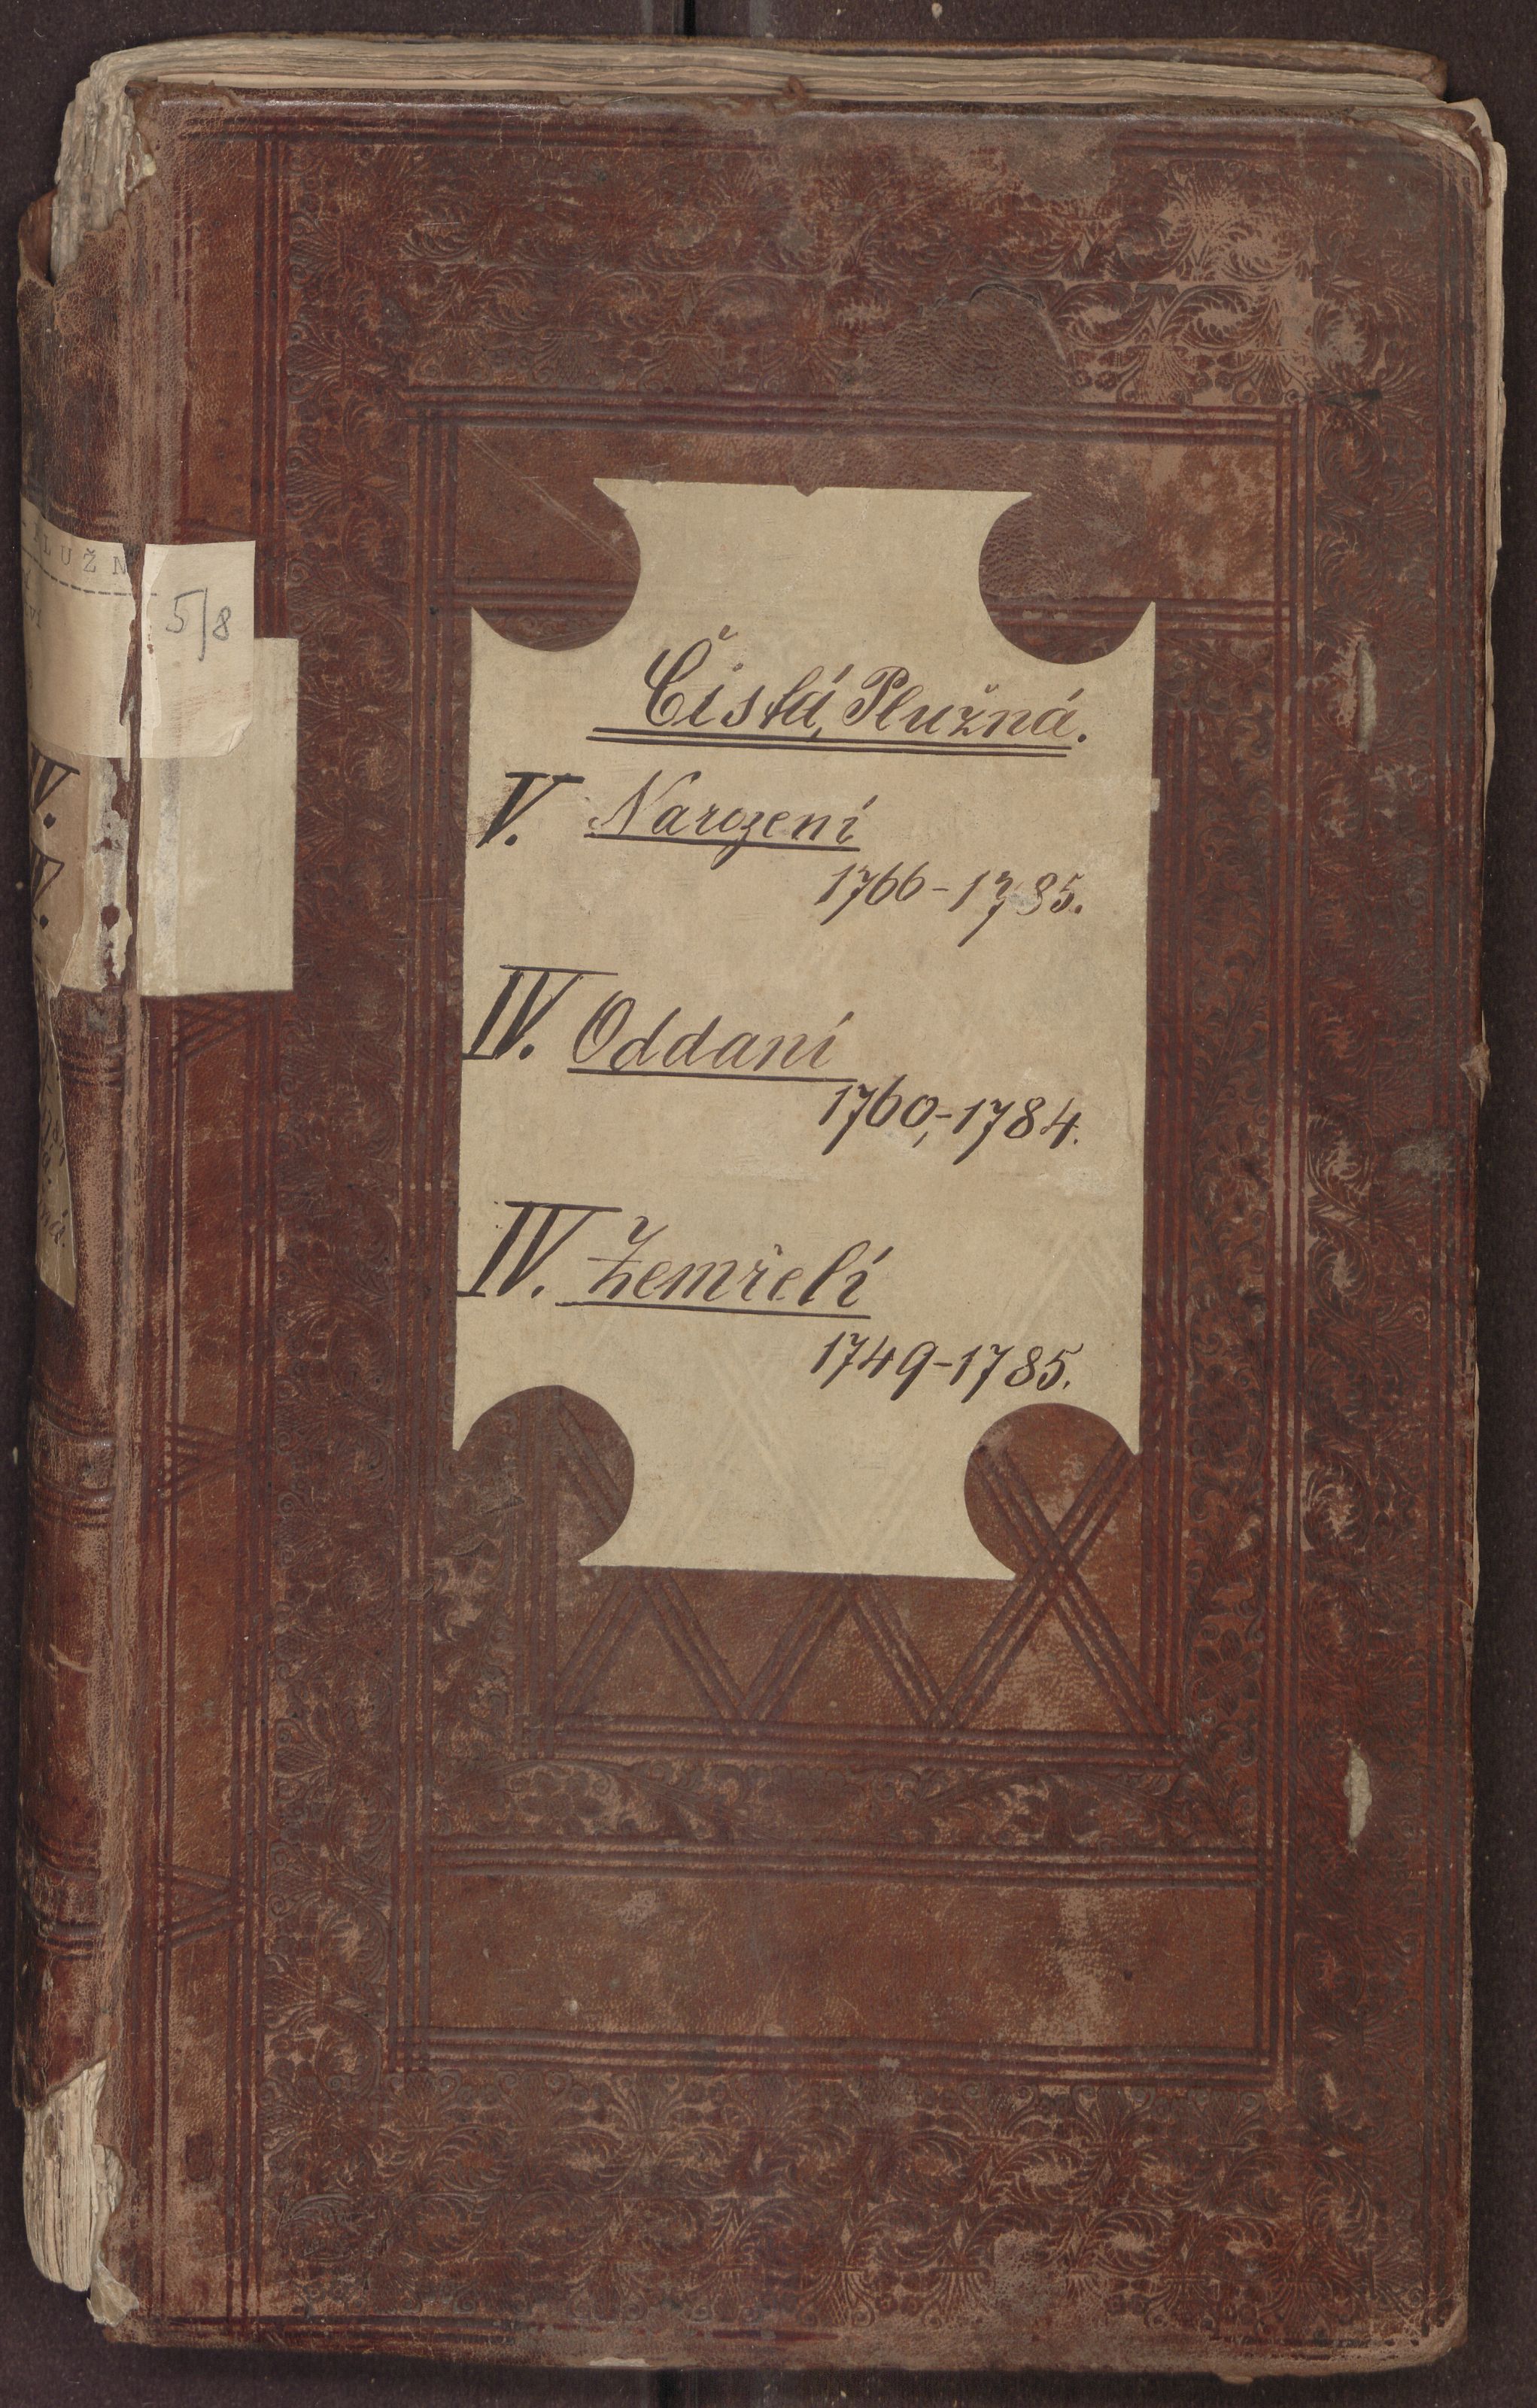 Čistá, Plužná.
V. Narozeni
1766-1785.
IV. Oddaní
1760,-1784.
IV. Zemřelí
1749-1785.
LUŽN
5/8
IV.